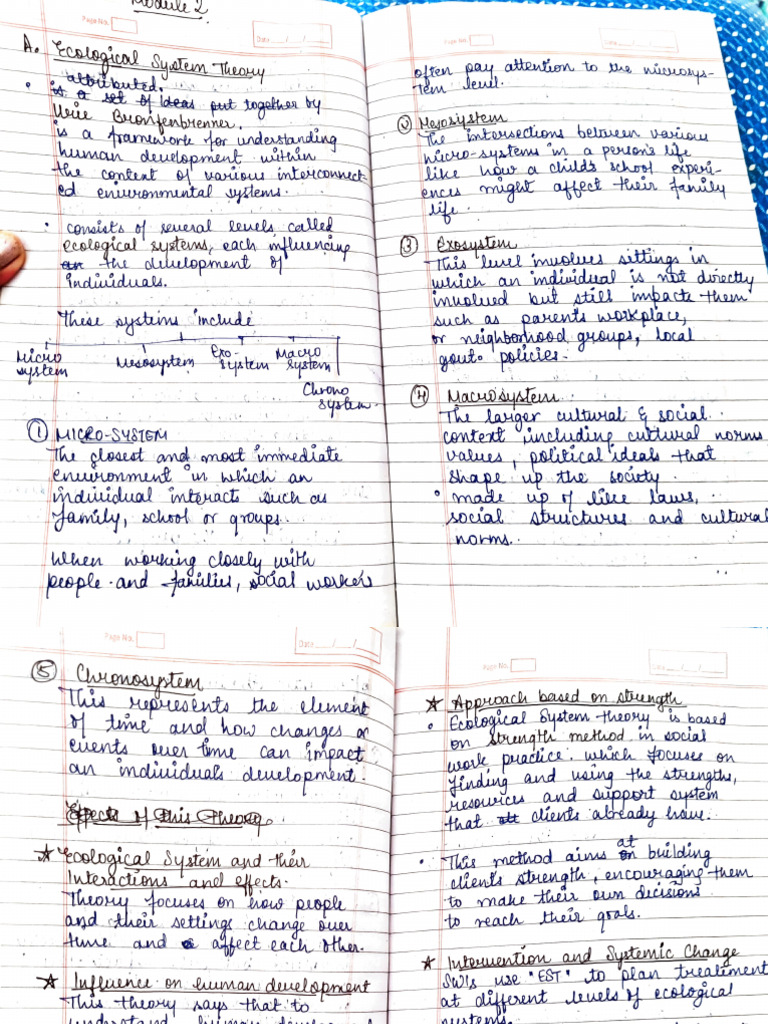 Module 2
Page No.
Date
A. Ecological System Theory
attributed.
• is a set of Ideas put together by
Urie Bronfenbrenner.
is a framework for understanding
human development within
the context of various interconnect-
ed environmental systems.
• consists of several levels called
ecological systems, each influencing
the development of
individuals.
These systems include
Micro system
Mesosystem
Exo-system
Macro system
Chrono system
① MICRO-SYSTEM
The closest and most immediate
environment in which an
individual interacts such as
family, school or groups.
When working closely with
people and families, social workers
Page No.
Date
often pay attention to the microsys-
tem level.
② Mesosystem
The intersections between various
micro-systems in a person's life
like how a child's school experi-
ences might affect their family
life.
③ Exosystem
This level involves sittings in
which an individual is not directly
involved but still impacts them
such as parents workplace,
or neighborhood groups, local
govt. policies.
④ Macrosystem
The larger cultural & social
context including cultural norms
values, political ideals that
shape up the society.
• made up of like laws,
social structures and cultural
norms.
Page No.
Date
⑤ Chronosystem
This represents the element
of time and how changes or
events over time can impact
an individuals development.
Effects of this Theory
☆ Ecological System and their
Interactions and effects.
Theory focuses on how people
and their settings change over
time and affect each other.
☆ Influence on human development
This theory says that to
understand human
Page No.
Date
☆ Approach based on strength
• Ecological System theory is based
on strength method in social
work practice. which focuses on
finding and using the strengths,
resources and support system
that clients already have.
• This method aims at building
clients strength, encouraging them
to make their own decisions
to reach their goals.
☆ Intervention and Systemic Change
SW's use "EST" to plan treatment
at different levels of ecological
systems.